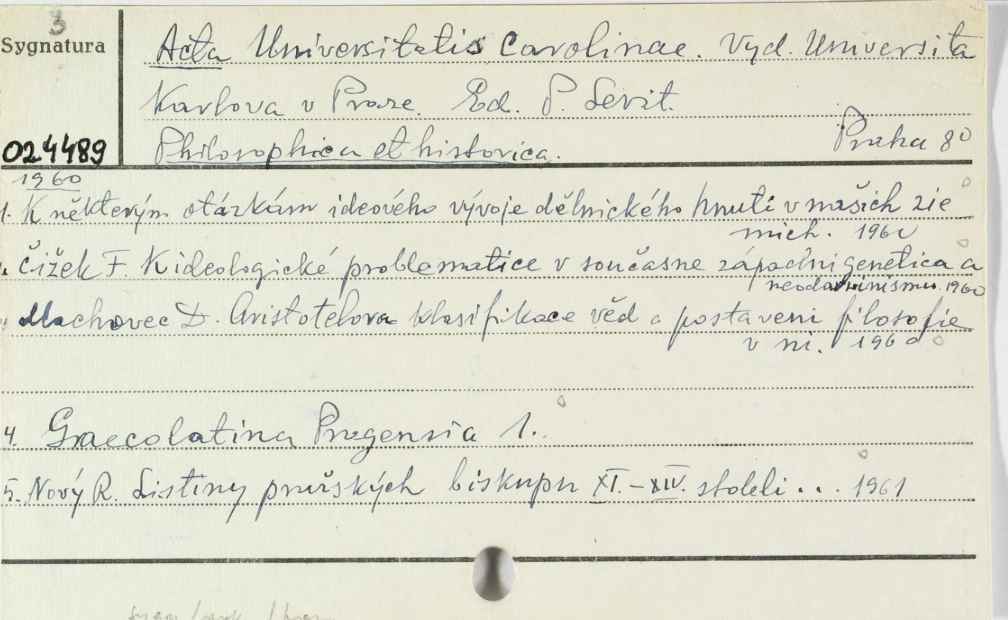 3
Sygnatura
024489
Acta Universitatis Carolinae. Vyd. Universita
Karlova v Praze. Ed. P. Levit.
Philosophica et historica. Praha 8°
1960
1. K některým otázkám ideového vývoje dělnického hnutí v našich zie
mich. 1960
Čižek F. K ideologické problematice v současne západni genetica a
neodarvinismu. 1960
Machovec D. Aristotelova klasifikace věd a postaveni filosofie
v ni. 1960
4. Graecolatina Pragensia 1.
5. Nový R. Listiny pražských biskupu XI.-XIV. stoleli... 1961